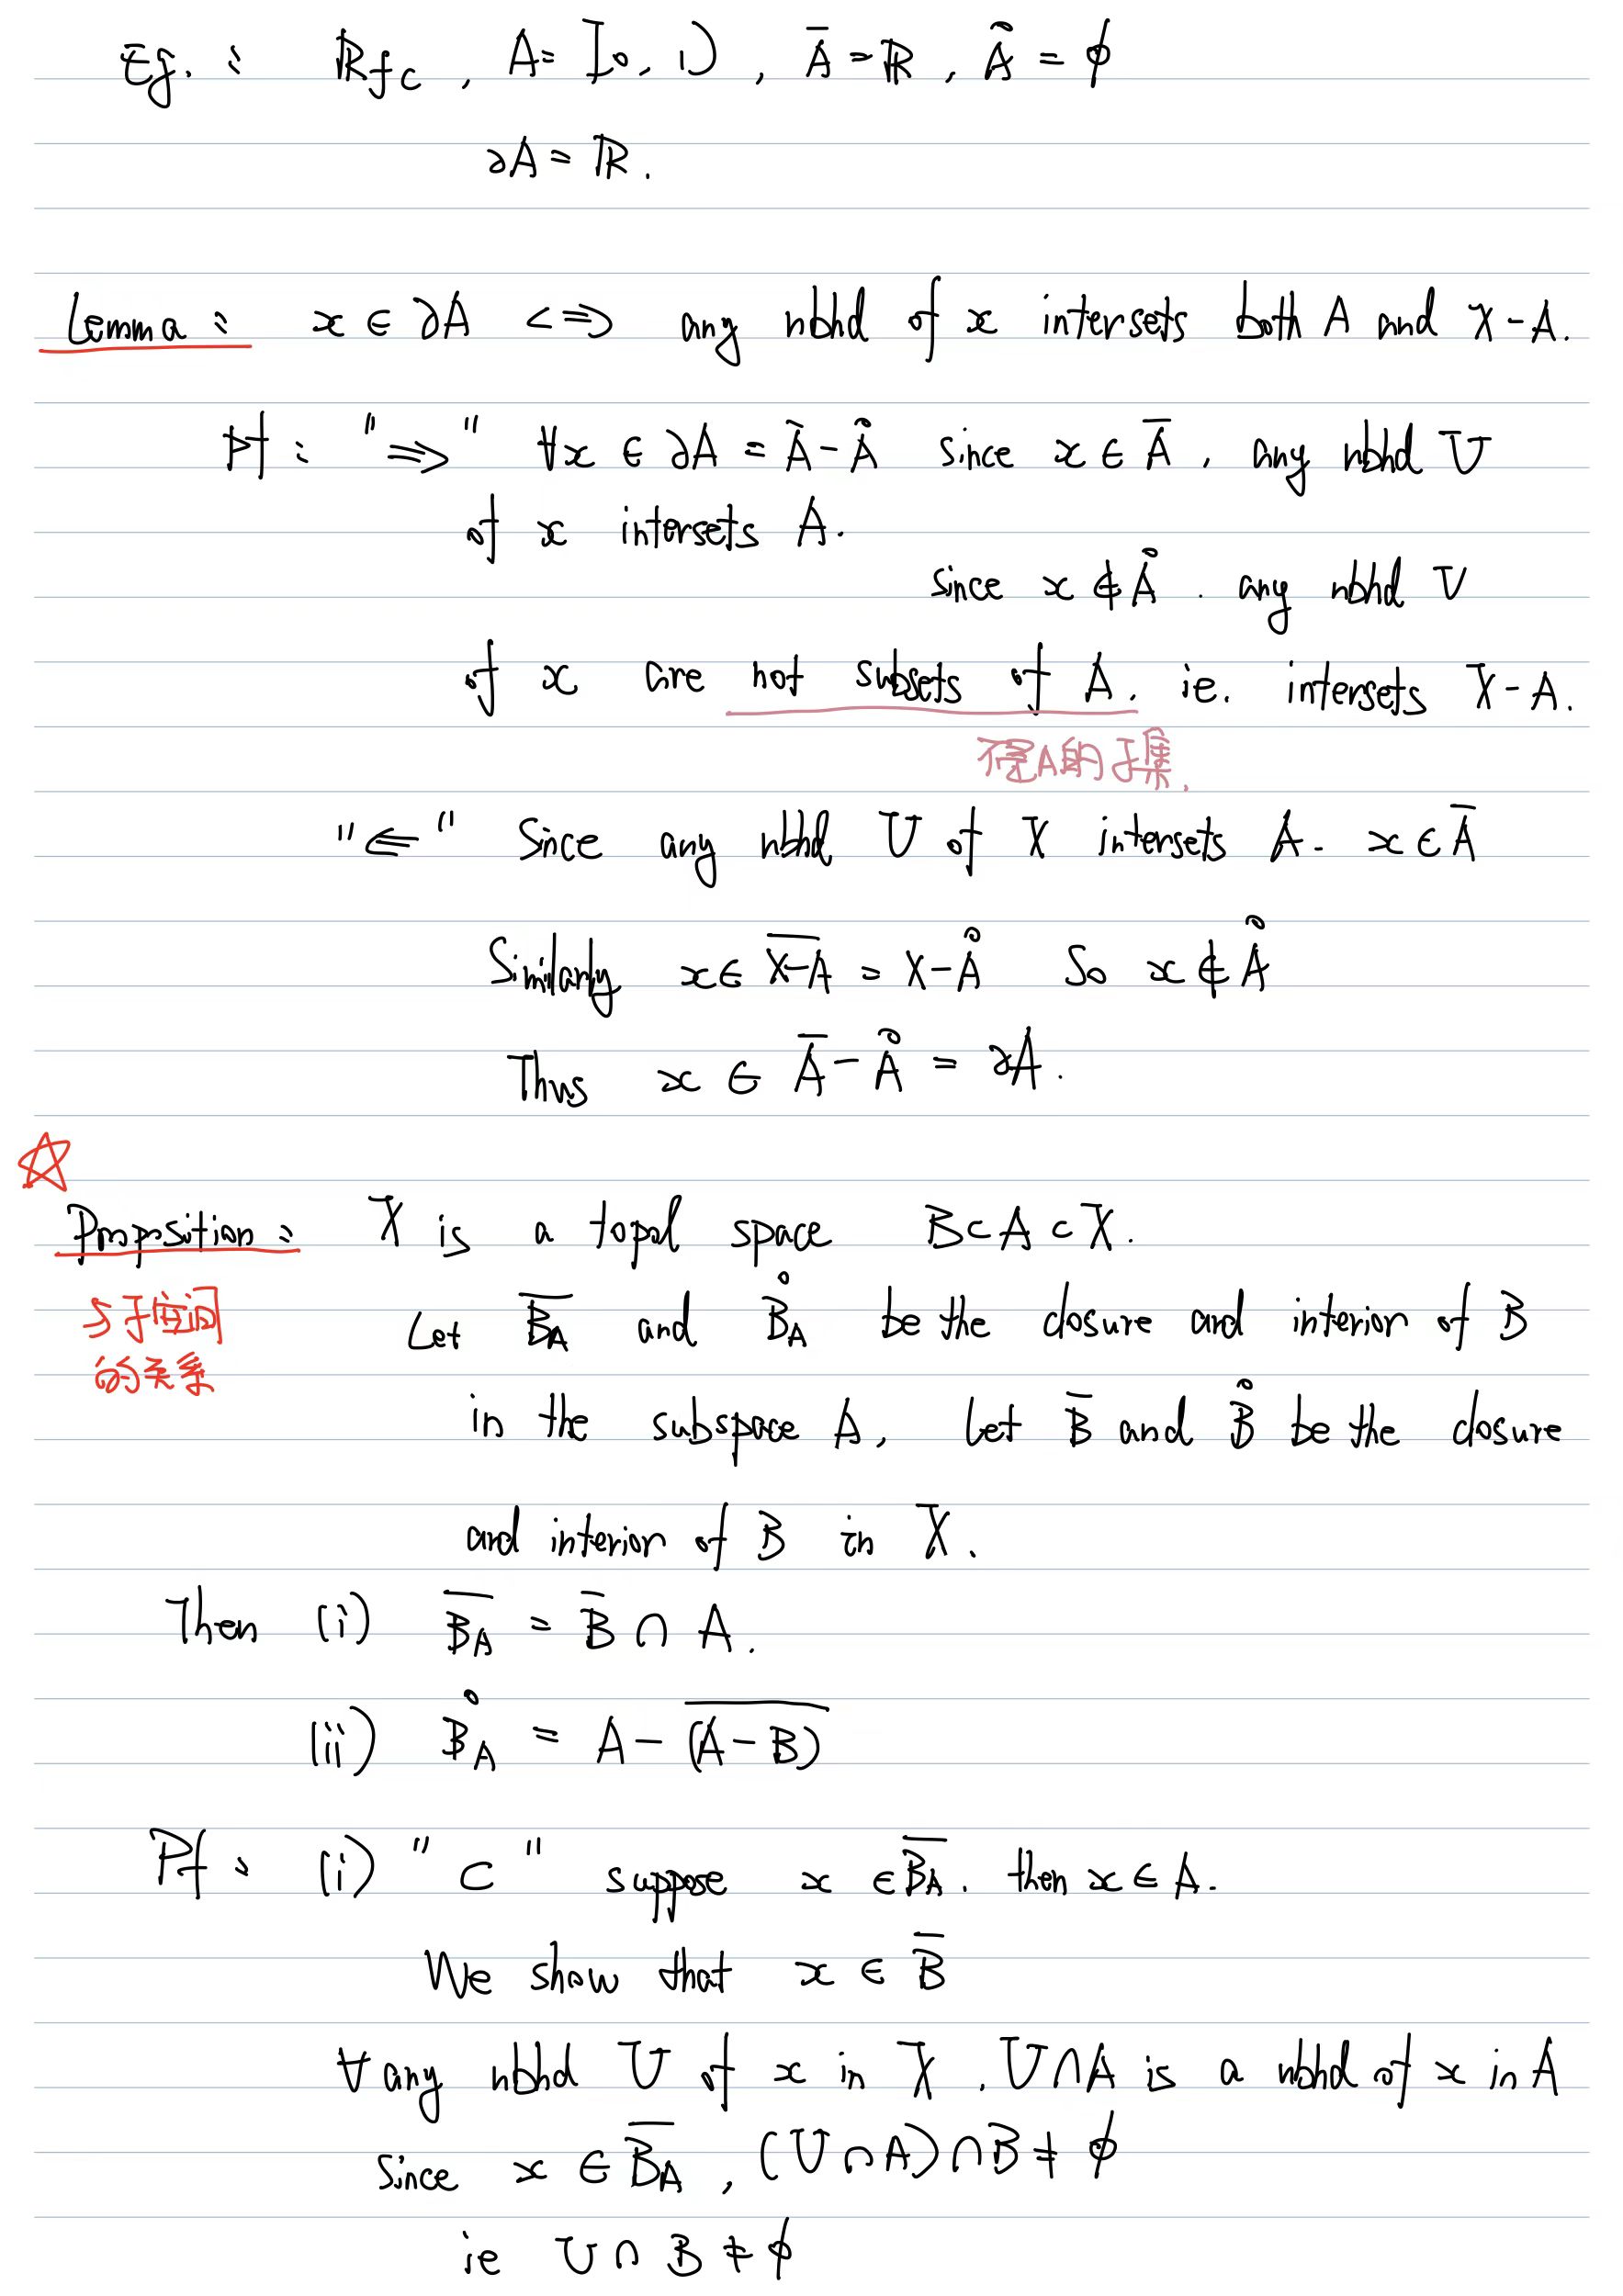 Eg. : ℝfc , A= [0, 1) , Ā = ℝ , Å = ϕ
∂A = ℝ.
Lemma : x ∈ ∂A <=> any nbhd of x intersets both A and X-A.
Pf : "⇒" ∀x ∈ ∂A = Ā - Å since x ∈ Ā , any nbhd U
of x intersets A.
since x ∉ Å . any nbhd U
of x are not subsets of A. ie. intersets X-A.
不是A的子集.
"⇐" Since any nbhd U of X intersets A. x ∈ Ā
Similarly x ∈ \overline{X-A} = X-Å So x ∉ Å
Thus x ∈ Ā - Å = ∂A.
☆
Proposition : X is a topol space B⊂A⊂X.
与子空间
的关系
Let \overline{B_A} and \mathring{B}_A be the closure and interior of B
in the subspace A, Let \overline{B} and \mathring{B} be the closure
and interior of B in X.
Then (i) \overline{B_A} = \overline{B} ∩ A.
(ii) \mathring{B}_A = A - \overline{(A-B)}
Pf : (i) "⊂" suppose x ∈ \overline{B_A}. then x ∈ A.
We show that x ∈ \overline{B}
∀ any nbhd U of x in X , U∩A is a nbhd of x in A
since x ∈ \overline{B_A} , (U∩A)∩B ≠ ϕ
ie U∩B ≠ ϕ